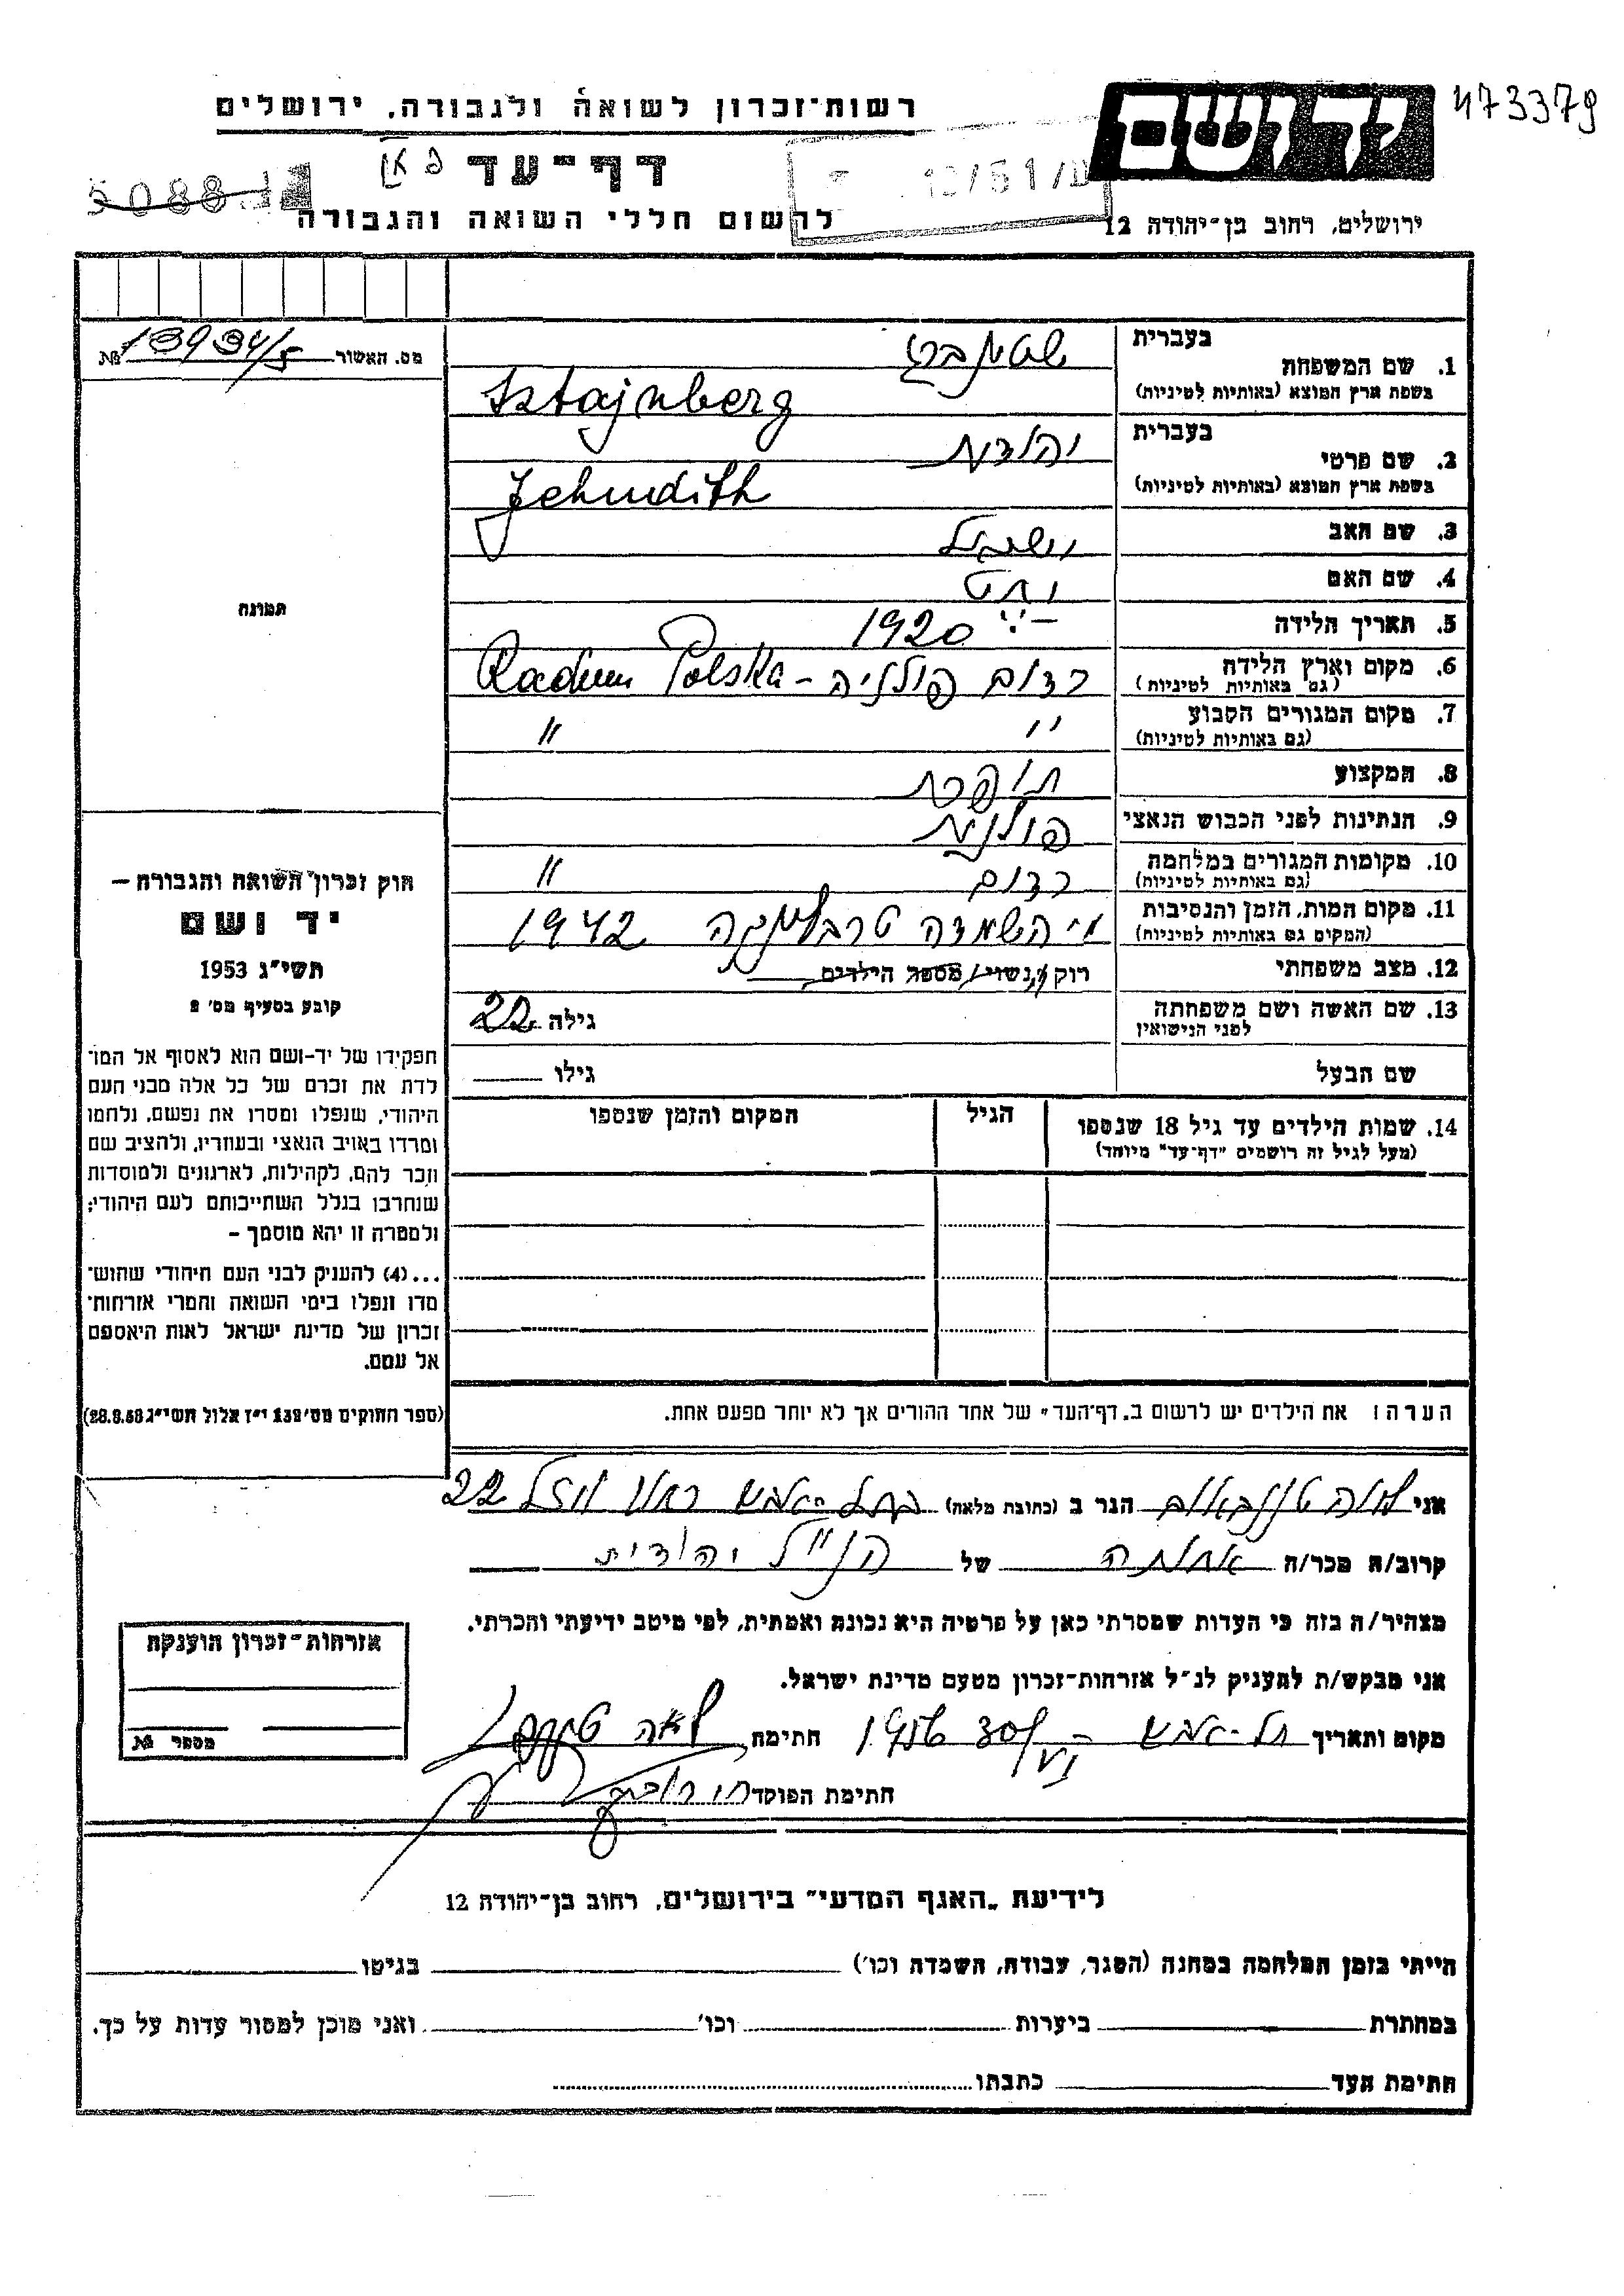 473379
יד ושם
רשות־זכרון לשואה ולגבורה, ירושלים
דף־עד
5088
לרשום חללי השואה והגבורה
ירושלים, רחוב בן־יהודה 12
מס. האשור 13934/5 №
1. שם המשפחה
בעברית שטינברג
בשפת ארץ המוצא (באותיות לטיניות) Sztajnberg
2. שם פרטי
בעברית יהודית
בשפת ארץ המוצא (באותיות לטיניות) Jehudith
3. שם האב
4. שם האם
5. תאריך הלידה 1920
6. מקום וארץ הלידה רדום פולניה – Radom Polska
(גם באותיות לטיניות)
7. מקום המגורים הקבוע " "
(גם באותיות לטיניות)
8. המקצוע תופרת
9. הנתינות לפני הכבוש הנאצי פולנית
10. מקומות המגורים במלחמה רדום "
(גם באותיות לטיניות)
11. מקום המות, הזמן והנסיבות השמדה טרבלינקה 1942
(המקום גם באותיות לטיניות)
12. מצב משפחתי רוק/נשוי/מספר הילדים
13. שם האשה ושם משפחתה גילה 22
לפני הנישואין
שם הבעל גילו
14. שמות הילדים עד גיל 18 שנספו הגיל המקום והזמן שנספו
(מעל לגיל זה רושמים "דף־עד" מיוחד)
הערה: את הילדים יש לרשום ב„דף־העד" של אחד ההורים אך לא יותר מפעם אחת.
תמונה
חוק זכרון השואה והגבורה —
יד ושם
תשי"ג 1953
קובע בסעיף מס' 2
תפקידו של יד-ושם הוא לאסוף אל המו־
לדת את זכרם של כל אלה מבני העם
היהודי, שנפלו ומסרו את נפשם, נלחמו
ומרדו באויב הנאצי ובעוזריו, ולהציב שם
וזכר להם, לקהילות, לארגונים ולמוסדות
שנחרבו בגלל השתייכותם לעם היהודי;
ולמטרה זו יהא מוסמך —
...(4) להעניק לבני העם היהודי שהוש־
מדו ונפלו בימי השואה והמרי אזרחות־
זכרון של מדינת ישראל לאות היאספם
אל עמם.
(ספר החוקים מס' 132 י"ז אלול תשי"ג 28.8.53)
אני לאה הגר ב (כתובת מלאה) 22
קרוב/ה מכר/ה אחותה של הנ"ל יהודית
מצהיר/ה בזה כי העדות שמסרתי כאן על פרטיה היא נכונה ואמתית, לפי מיטב ידיעתי והכרתי.
אני מבקש/ת להעניק לנ"ל אזרחות־זכרון מטעם מדינת ישראל.
מקום ותאריך חתימה לאה
חתימת הפוקד
אזרחות־זכרון הוענקה
מספר №
לידיעת „האגף המדעי" בירושלים, רחוב בן־יהודה 12
הייתי בזמן המלחמה במחנה (הסגר, עבודה, השמדה וכו') בגיטו
במחתרת ביערות וכו' ואני מוכן למסור עדות על כך.
חתימת העד כתבתו